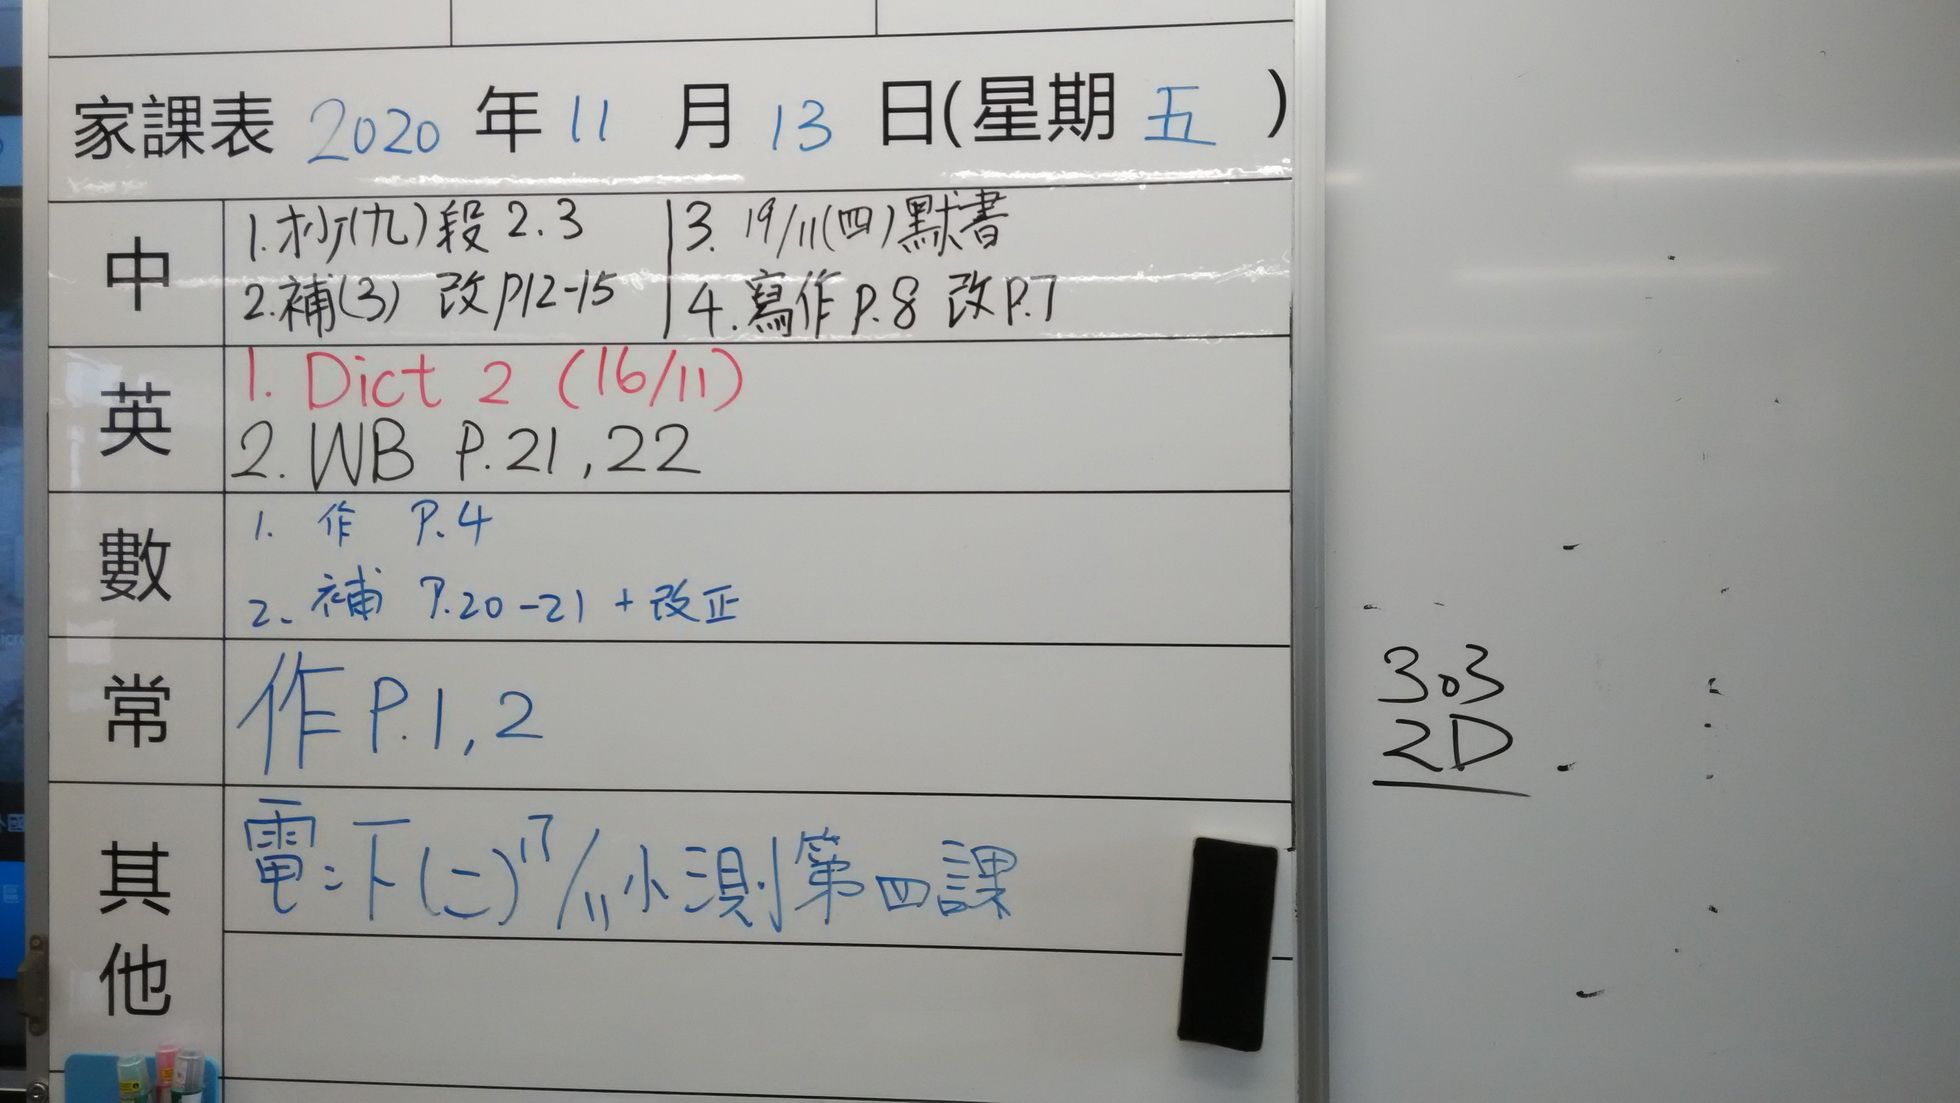 家課表 2020 年 11 月 13 日(星期 五 )
中
1. 抄(九)段 2.3
2. 補(3) 改 P12-15
3. 19/11(四)默書
4. 寫作 P.8 改 P.7
英
1. Dict 2 (16/11)
2. WB P.21,22
數
1. 作 P.4
2. 補 P.20-21 + 改正
常
作 P.1,2
其他
電:下(二)17/11小測第四課
303
2D